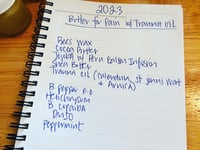 2023
Butter for Pain w/ Trauma Oil
Bees wax
Cocoa Butter
Jojoba w/ Peru Balsam Infusion
Shea Butter
Trauma Oil (Calendula, St. Johns Wort
& Arnica)
B. Pepper E.O
Helichrysum
B. Copaiba
DMSO
Peppermint